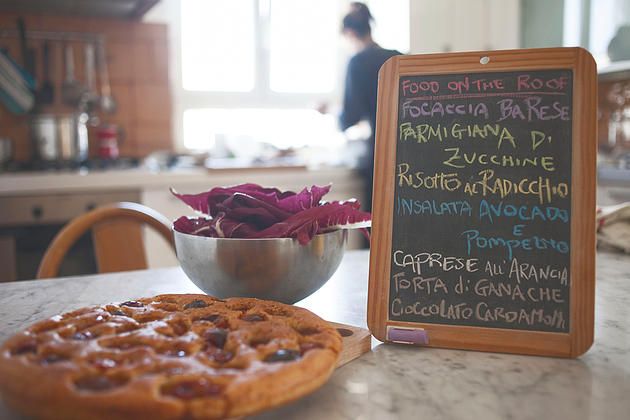 FOOD ON THE ROOF
FOCACCIA BARESE
PARMIGIANA DI
ZUCCHINE
RISOTTO AL RADICCHIO
INSALATA AVOCADO
E
POMPELMO
CAPRESE ALL'ARANCIA
TORTA di GANACHE
CIOCCOLATO CARDAMOM